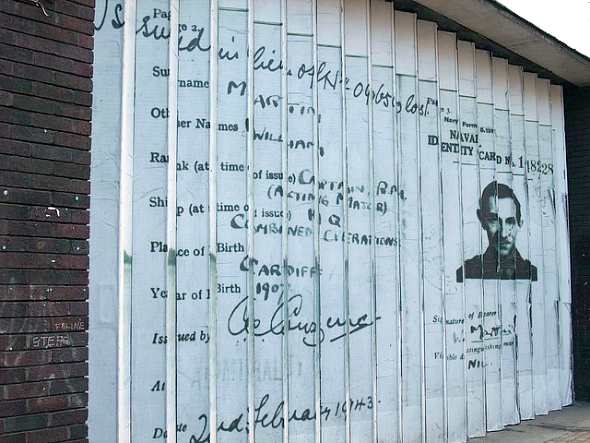 Page 2
Issued in lieu of No 09650 lost.
Surname MARTIN
Other Names WILLIAM
Rank (at time of issue) CAPTAIN, R.M.
(ACTING MAJOR)
Ship (at time of issue) H.Q.
COMBINED OPERATIONS
Place of Birth CARDIFF
Year of Birth 1907
Issued by
At
Date 2nd February 1943.
Page 3
Navy Form
NAVAL
IDENTITY CARD No. 148228
Signature of Bearer
W. Martin
Visible distinguishing marks
NIL.
STEFF